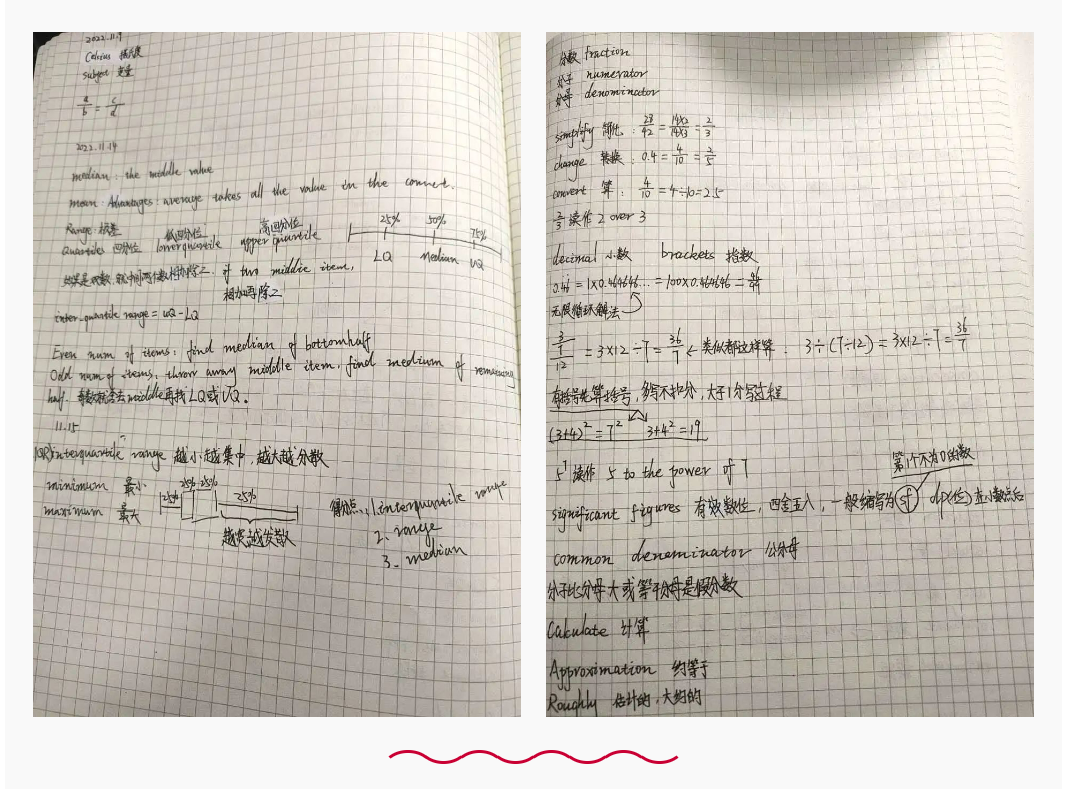 2022.11.9
Celsius 摄氏度
subject 变量
a/b = c/d
2022.11.14
median: the middle value
mean: Advantages: average takes all the value in the connect.
Range: 极差
Quartiles 四分位 低四分位 lowerquartile 高四分位 upper quartile
25% 50% 75%
LQ Median UQ
如果是双数,就中间两个数相加除二. if two middle item,
相加再除二
inter-quartile range = UQ-LQ
Even num of items: find median of bottomhalf
Odd num of items, throw away middle item, find medium of remaining
half. 奇数就舍去middle再找LQ或UQ.
11.15
(IQR)interquartile range 越小越集中,越大越分散
minimum 最小
maximum 最大
25% 25% 25% 25%
越宽越发散
得分点: 1.interquartile range
2. range
3. median
分数 fraction
分子 numerator
分母 denominator
simplify 简化: 28/42 = 14×2/14×3 = 2/3
change 转换: 0.4 = 4/10 = 2/5
convert 算: 4/10 = 4÷10=2.5
2/3 读作 2 over 3
decimal 小数 brackets 指数
无限循环解法
= 3×12÷7 = 36/7 ← 类似都这样算. 3÷(7÷12) = 3×12÷7 = 36/7
有括号先算括号,多写不扣分,大于1分写过程
(3+4)² = 7² 3+4² = 19
5⁷ 读作 5 to the power of 7
第1个不为0的数
significant figures 有效数位, 四舍五入, 一般缩写为sf dp(位)在小数点后
common denominator 公分母
分子比分母大或等于分母是假分数
Calculate 计算
Approximation 约等于
Roughly 估计的,大约的